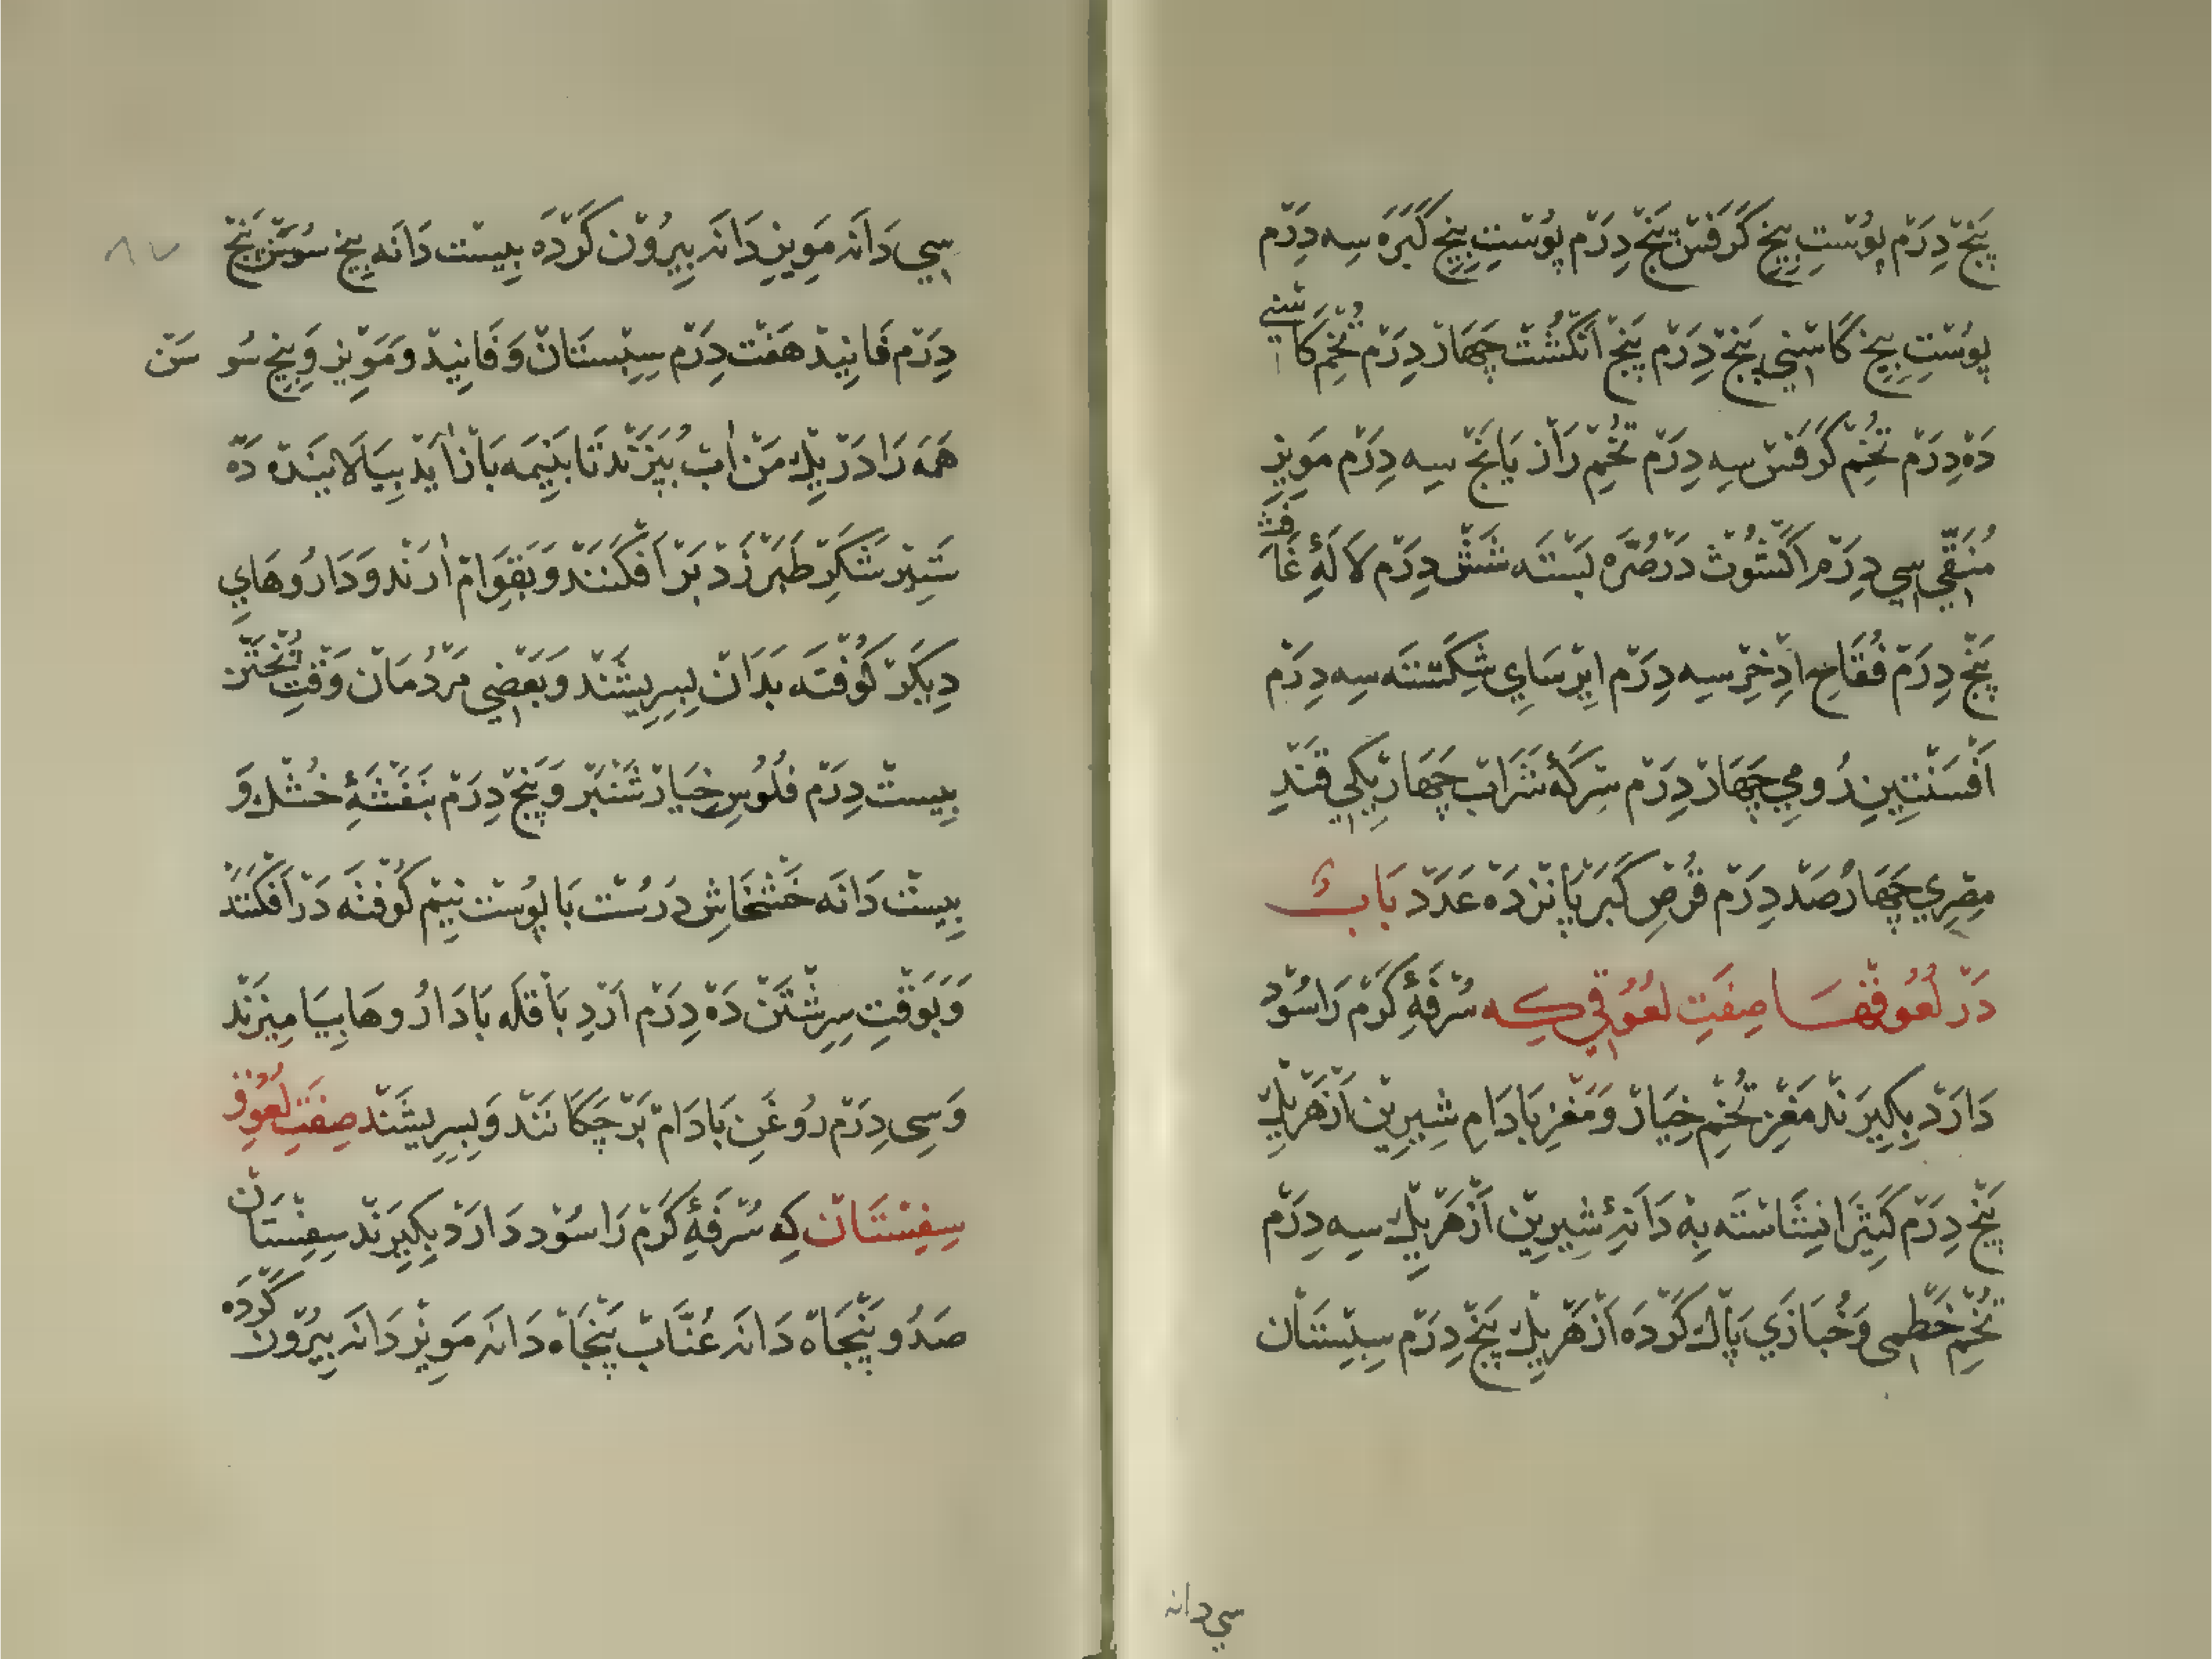 پَنْج دِرَمْ پوُسْتِ بِیخِ کَرَفْسْ پَنْج دِرَمْ پوُسْتِ بِیخِ کَبَرَه سِه دِرَمْ
پوُسْتِ بِیخِ کَاسْنِي پَنْج دِرَمْ پَنْج اَنْکُشْت چَهَارْ دِرَمْ تُخْمِ کَاسْنِي
دَهْ دِرَمْ تُخْمِ کَرَفْسْ سِه دِرَمْ تُخْمِ رَازْیَانَجْ سِه دِرَمْ مَوِیزِ
مُنَقّي سِي دِرَمْ اَکْشُوُثْ دَرْصُرَّه بَسْتَه شَشْ دِرَمْ لَالَهٔ غَافِثْ
پَنْج دِرَمْ فُقَاحِ اِذْخِرْ سِه دِرَمْ اِیرْسَايِ شِکَسْتَه سِه دِرَمْ
اَفْسَنْتِینِ رُومِي چَهَارْ دِرَمْ سِرْکَهٔ شَرَابْ چَهَارْ یَکِي قَنْدِ
مِصْرِي چَهَارْصَدْ دِرَمْ قُرْصِ کَبَرْ پَانْزدَهْ عَدَدْ بَابْ
دَرْ لَعُوقْهَا صِفَتِ لَعُوُقِي کِه سُرْفَهٔ کَرْم رَاسُوْد
دَارَدْ بِکِیرَنْد مَغْزِ تُخْمِ خِیَارْ وَمَغْزِ بَادَامِ شِیرِینْ اَزْهَرْیِكْ
پَنْج دِرَمْ کَثِیَرَا نِشَاسْتَه بِهْ دَانَهٔ شِیرِینْ اَزْهَرْیِكْ سِه دِرَمْ
تُخْمِ خَطْمِي وَخُبَازَي پَاكْ کَرْدَه اَزْهَرْیِكْ پَنْج دِرَمْ سِبِسْتَانْ
سِي دانه
سِي دَانَه مَوِیزِ دَانَه بِیرُوْن کَرْدَه بِیسْت دَانَه بِیخِ سُوسَنْ پَنْج
دِرَمْ فَانِیذْ هَفْت دِرَمْ سِبِسْتَانْ وَفَانِیذْ وَمَوِیزْ وَبِیخِ سُو سَنْ
هَمَه رَا دَرْیِكْ مَنْ اٰبْ بُپَزَنْد تَا بَنِیمَه بَازْاٰیَدْ بِپَالَایَنَدْ دَهْ
شِیرْ شَکَرِ طَبَرْزَدْ بَرْ اَفْکَنَنْد وَبَقِوَامْ اٰرَنْد وَدَارُوهَايِ
دِیکَرْ کُوفْتَه بَدَانْ بِسِرِیشَنْد وَبَعْضِي مَرْدُمَانْ وَقْتِ پُخْتَنْ
بِیسْتْ دِرَمْ فُلُوسِ خِیَارْشَنْبَرْ وَپَنْج دِرَمْ بَنَفْشَهٔ خُشْكْ وَ
بِیسْتْ دَانَه خَشْخَاشِ دُرُسْت بَا پوُسْت نِیم کُوْفتَه دَرْاَفْکَنَنْد
وَبَوَقْتِ سِرِشْتَنْ دَهْ دِرَمْ اَرْدِ بَاقْلَه بَا دَارُوهَا بِیَامِیزَنْد
وَسِي دِرَمْ رُوغَنِ بَادَامْ بَرْچَکَانَنْد وَبِسِرِیشَنْد صِفَتِ لَعُوقِ
سِفِسْتَانْ کِه سُرْفَهٔ کَرْم رَا سُوْد دَارَدْ بِکِیرَنْد سِفِسْتَانْ
صَدُو پَنْجَاهْ دَانَه عُنَّابْ پَنْجَاهْ دَانَه مَوِیزْ دَانَه بِیرُوْن کَرْدَه